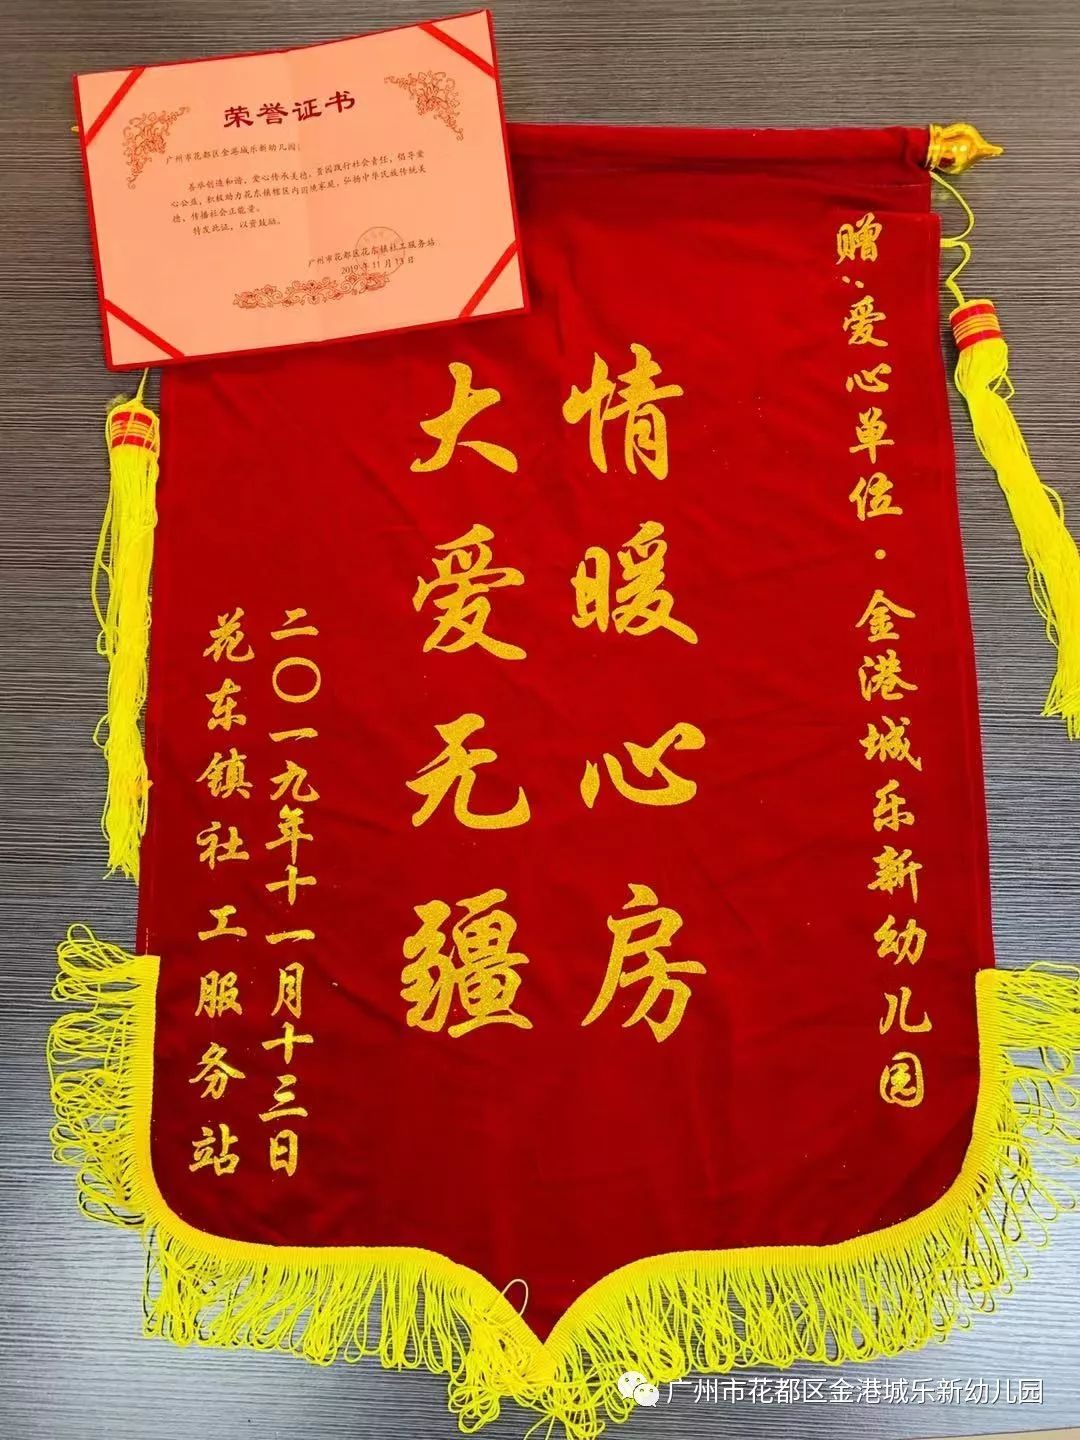 荣誉证书
广州市花都区金港城乐新幼儿园：
善举创造和谐，爱心传承美德，贵园践行社会责任，倡导爱
心公益，积极助力花东镇辖区内困境家庭，弘扬中华民族传统美
德，传播社会正能量。
特发此证，以资鼓励。
广州市花都区花东镇社工服务站
2019年11月13日
赠：爱心单位·金港城乐新幼儿园
情暖心房
大爱无疆
二〇一九年十一月十三日
花东镇社工服务站
广州市花都区金港城乐新幼儿园